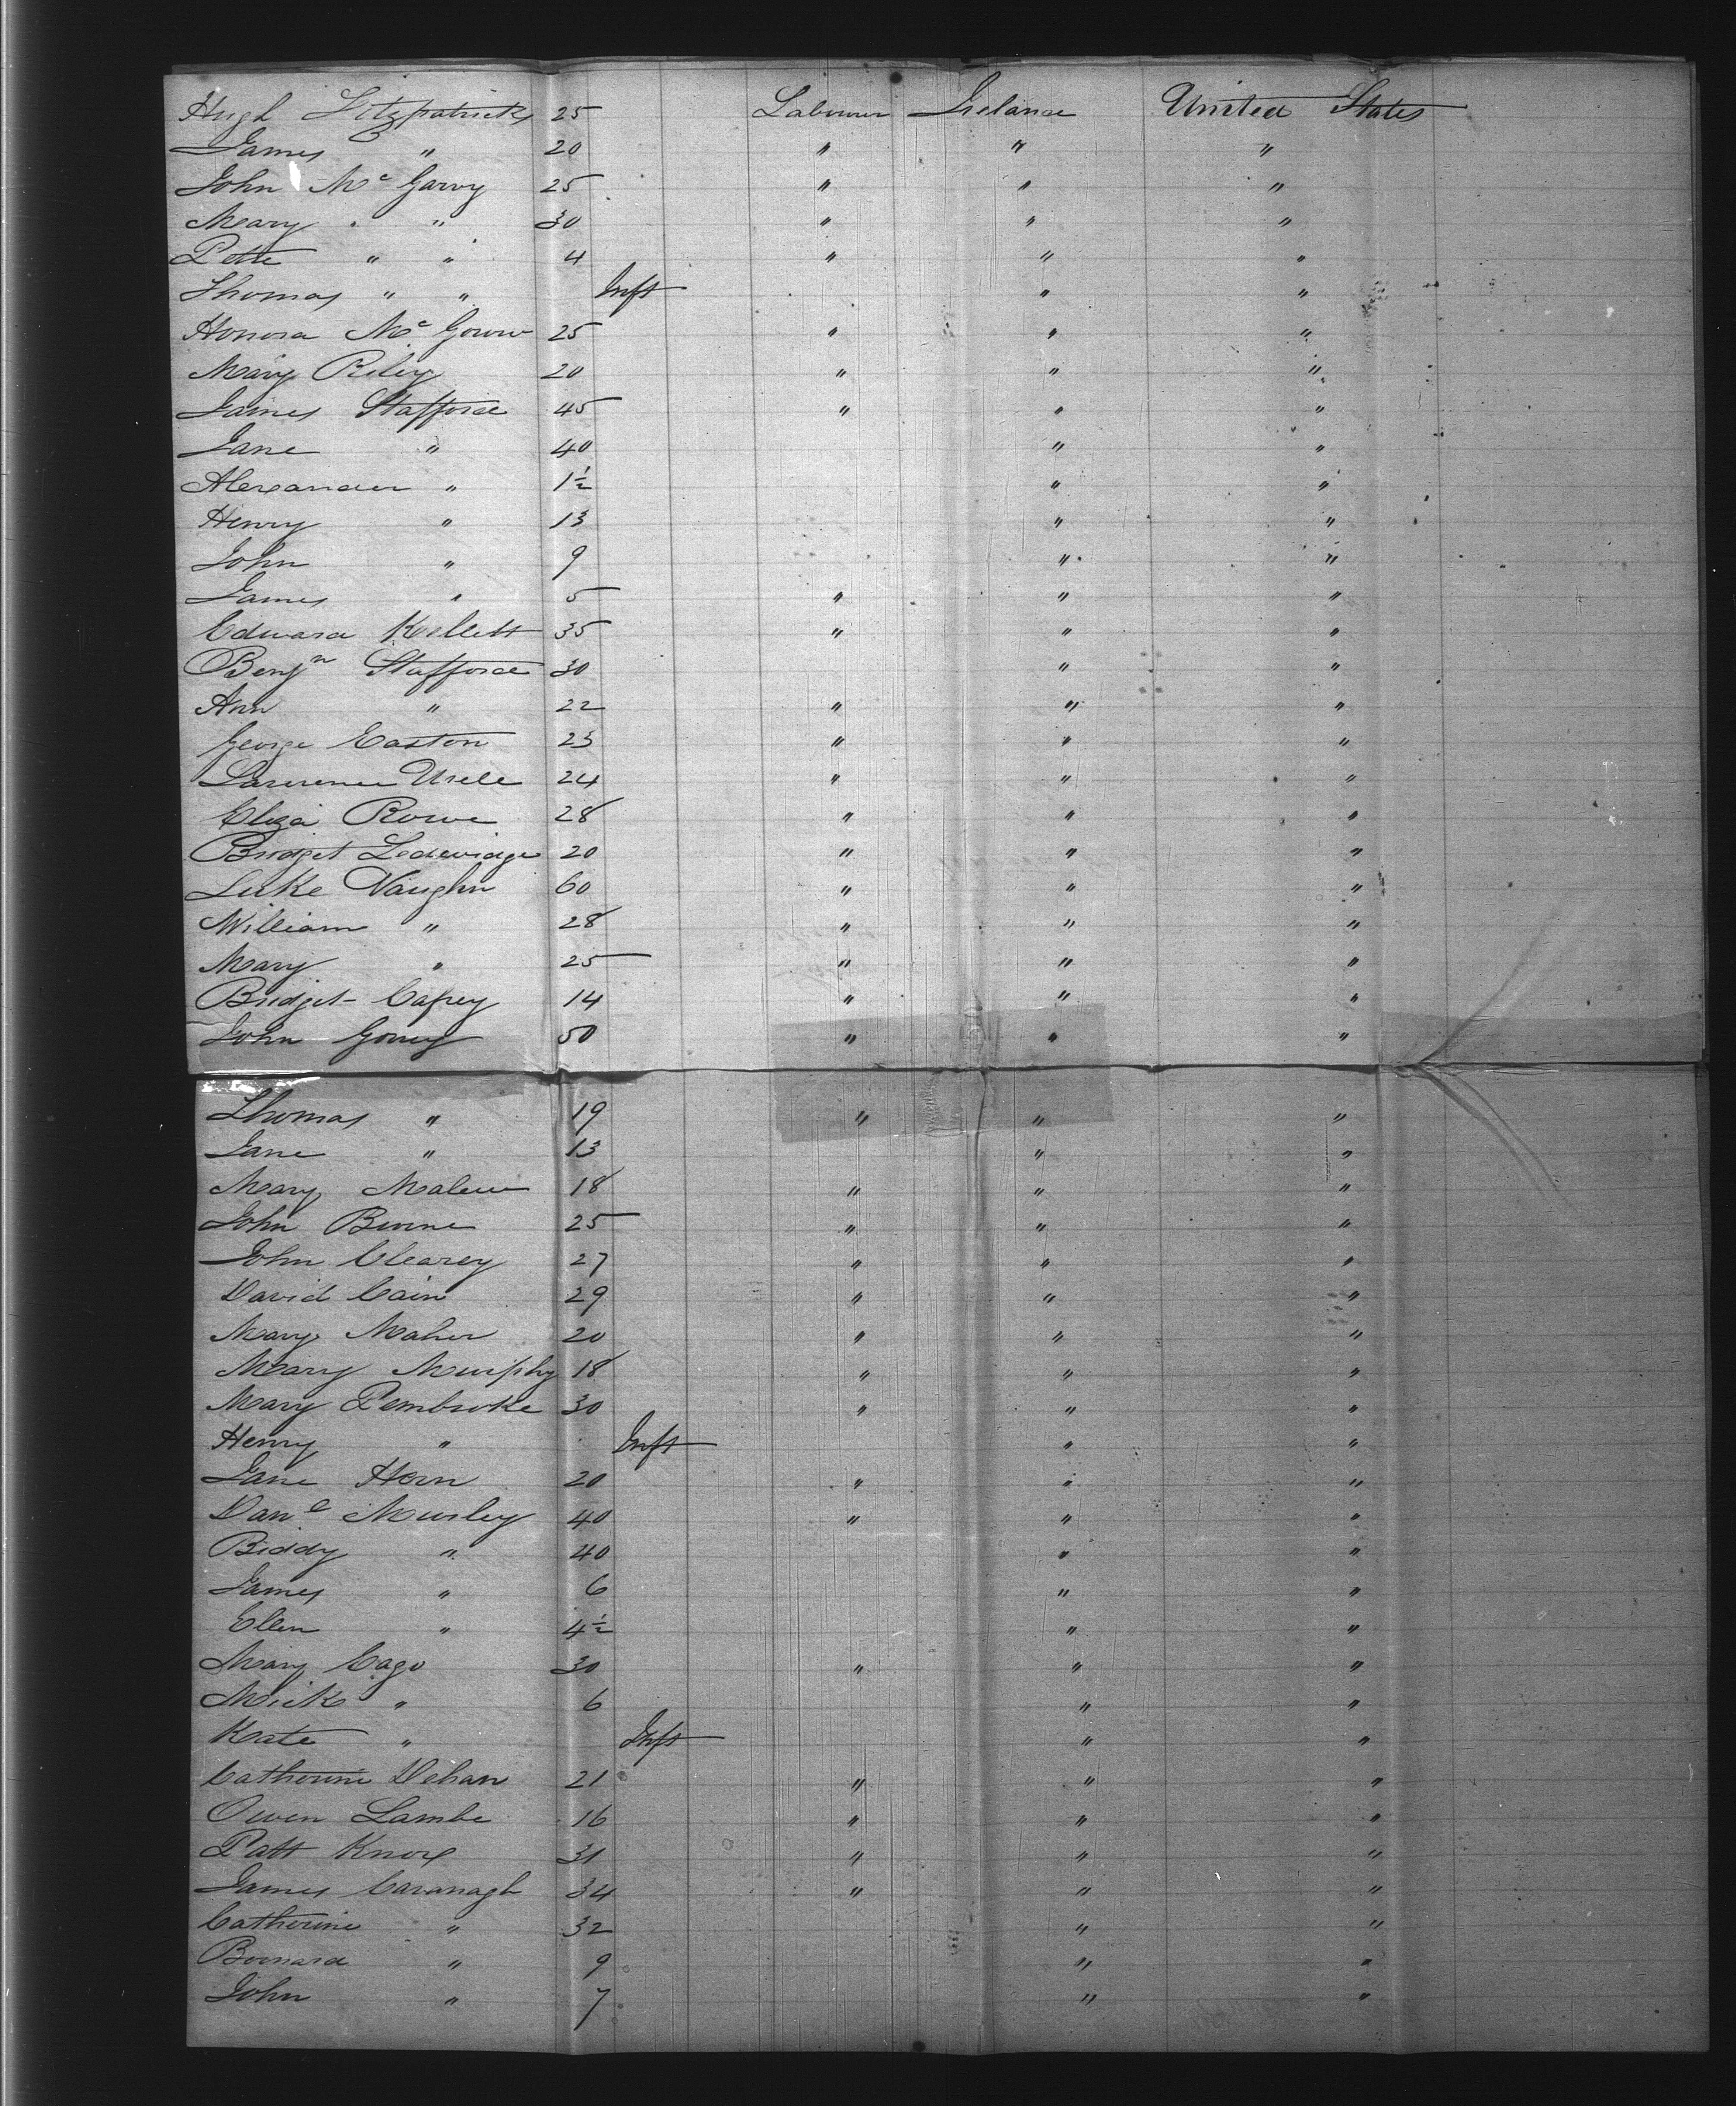 Hugh Fitzpatrick 25 Labourer Ireland United States
James " 20 " " "
John Mc Garvy 25 " " "
Mary " " 30 " " "
Pette " " 4 " " "
Thomas " " Inft " "
Honora Mc Gowr 25 " " "
Mary Riley 20 " " "
James Stafford 45 " " "
Jane " 40 " "
Alexander " 1½ " "
Henry " 13 " "
John " 9 " "
James " 5 " " "
Edward Kellett 35 " " "
Benjn Stafford 30 " "
Ann " 22 " " "
George Easton 23 " " "
Lawrence 24 " " "
Eliza Rowe 28 " " "
Bridget Ledewidge 20 " " "
Luke Vaughn 60 " " "
William " 28 " " "
Mary " 25 " " "
Bridget Cafrey 14 " " "
John Gorrey 50 " " "
Thomas " 19 " " "
Jane " 13 " "
Mary Malew 18 " " "
John Burne 25 " " "
John Clearey 27 " " "
David Cain 29 " " "
Mary Maher 20 " " "
Mary Murphy 18 " " "
Mary Pembroke 30 " " "
Henry " Inft " "
Jane Horn 20 " " "
Danl Murley 40 " " "
Biddy " 40 " "
James " 6 " "
Ellen " 4½ " "
Mary Cago 30 " " "
Mick " 6 " "
Kate " Inft " "
Catherine Dehan 21 " " "
Owen Lambe 16 " " "
Patt Knox 31 " " "
James Cavanagh 34 " " "
Catherine " 32 " "
Bernard " 9 " "
John " 7 " "